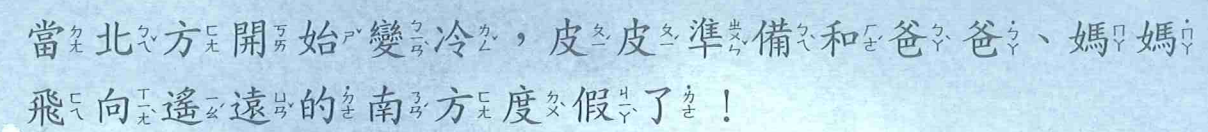 當北方開始變冷，皮皮準備和爸爸、媽媽
飛向遙遠的南方度假了！